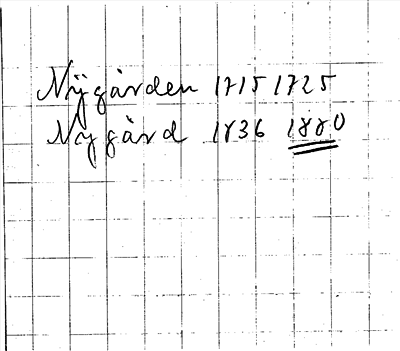 Nÿgården 1715 1725
Nygård 1836 1880